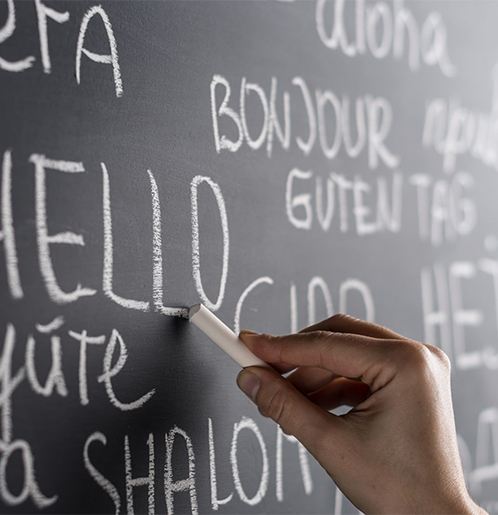 aloha
BONJOUR
при
GUTEN TAG
HELLO
CIAO
HEJ
SHALOM